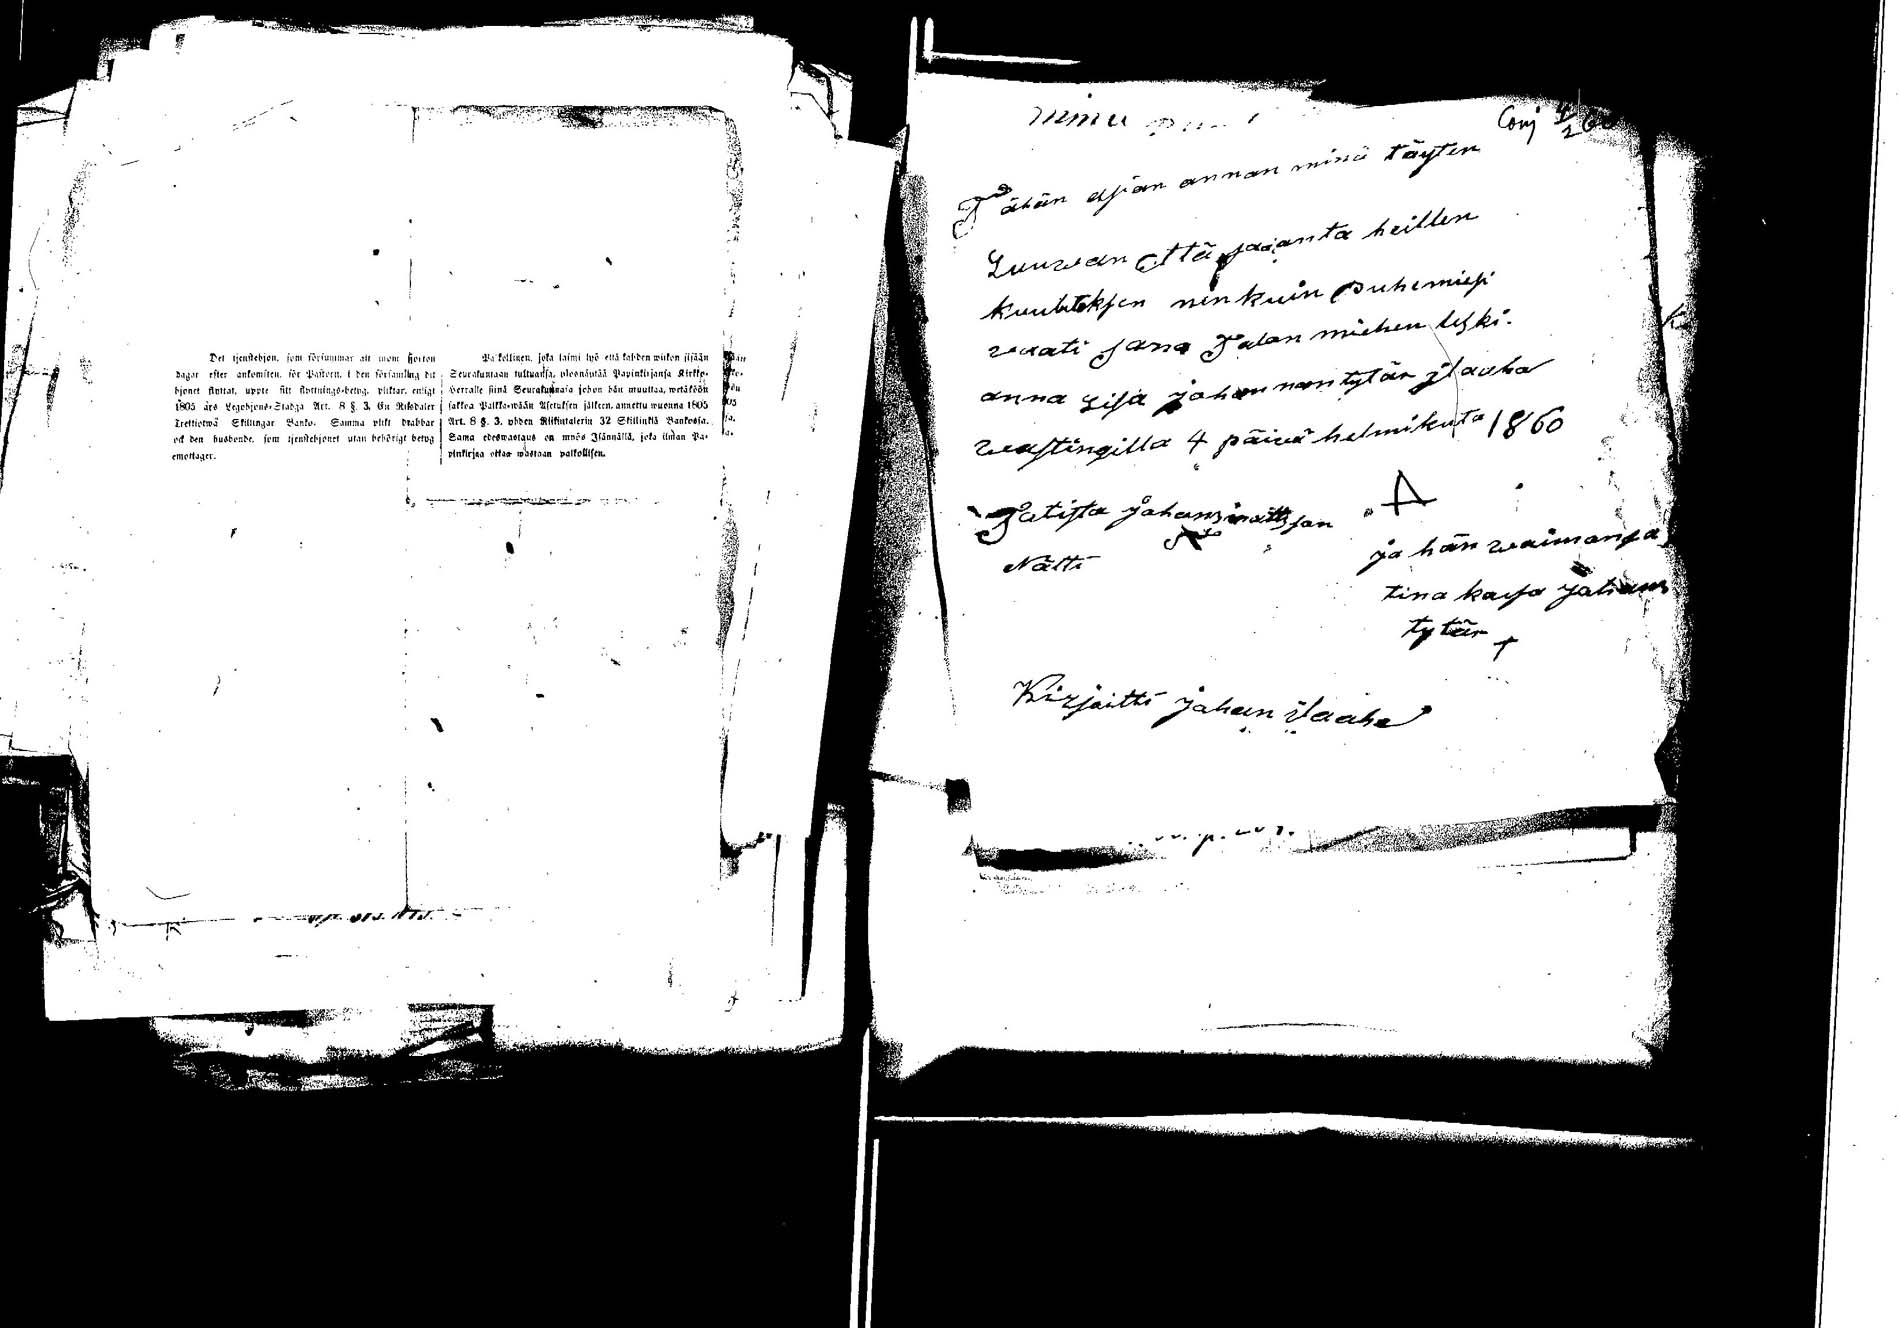 Det tjenstehjon, som försummar att inom fjorton
dagar efter ankomsten, för Pastorn, i den församling dit
hjonet flyttat, uppte sitt flyttnings-betyg, pliktar, enligt
1805 års Legohjons-Stadga Art. 8 §. 3. En Riksdaler
Trettiotwå Skillingar Banko. Samma plikt drabbar
ock den husbonde, som tjenstehjonet utan behörigt betyg
emottager.
Palkollinen, joka laimi lyö että kahden wiikon sisään
Seurakuntaan tultuansa, ylösnäytää Papinkirjansa Kirkko-
Herralle siinä Seurakunnasa johon hän muuttaa, wetäköön
sakkoa Palkka-wään Asetuksen jälkeen, annettu wuonna 1805
Art. 8 §. 3. yhden Riikintalerin 32 Skillinkiä Bankossa.
Sama edeswastaus on myös Isännällä, joka ilman Pa-
pinkirjaa ottaa wastaan palkollisen.
nimu
Conj 4/2 60
Tähän asjan annan minä täyten
Luuwan että saaanta heillen
kuulutksen nin kuin puhemiesi
waati sana Talan miehen leski.
anna Lisa johan nan tytär ylaaha
wastingilla 4 päiwä helmikuta 1860
Tatista johans mattsson
Nätti
ja hän waimansa
tina kaisa Johans
tytär +
Kirjoitti johan ylaaha